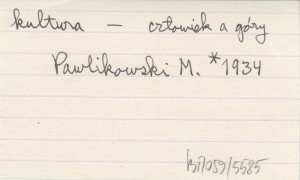 kultura — człowiek a góry
Pawlikowski M. *1934
BT/059/5585